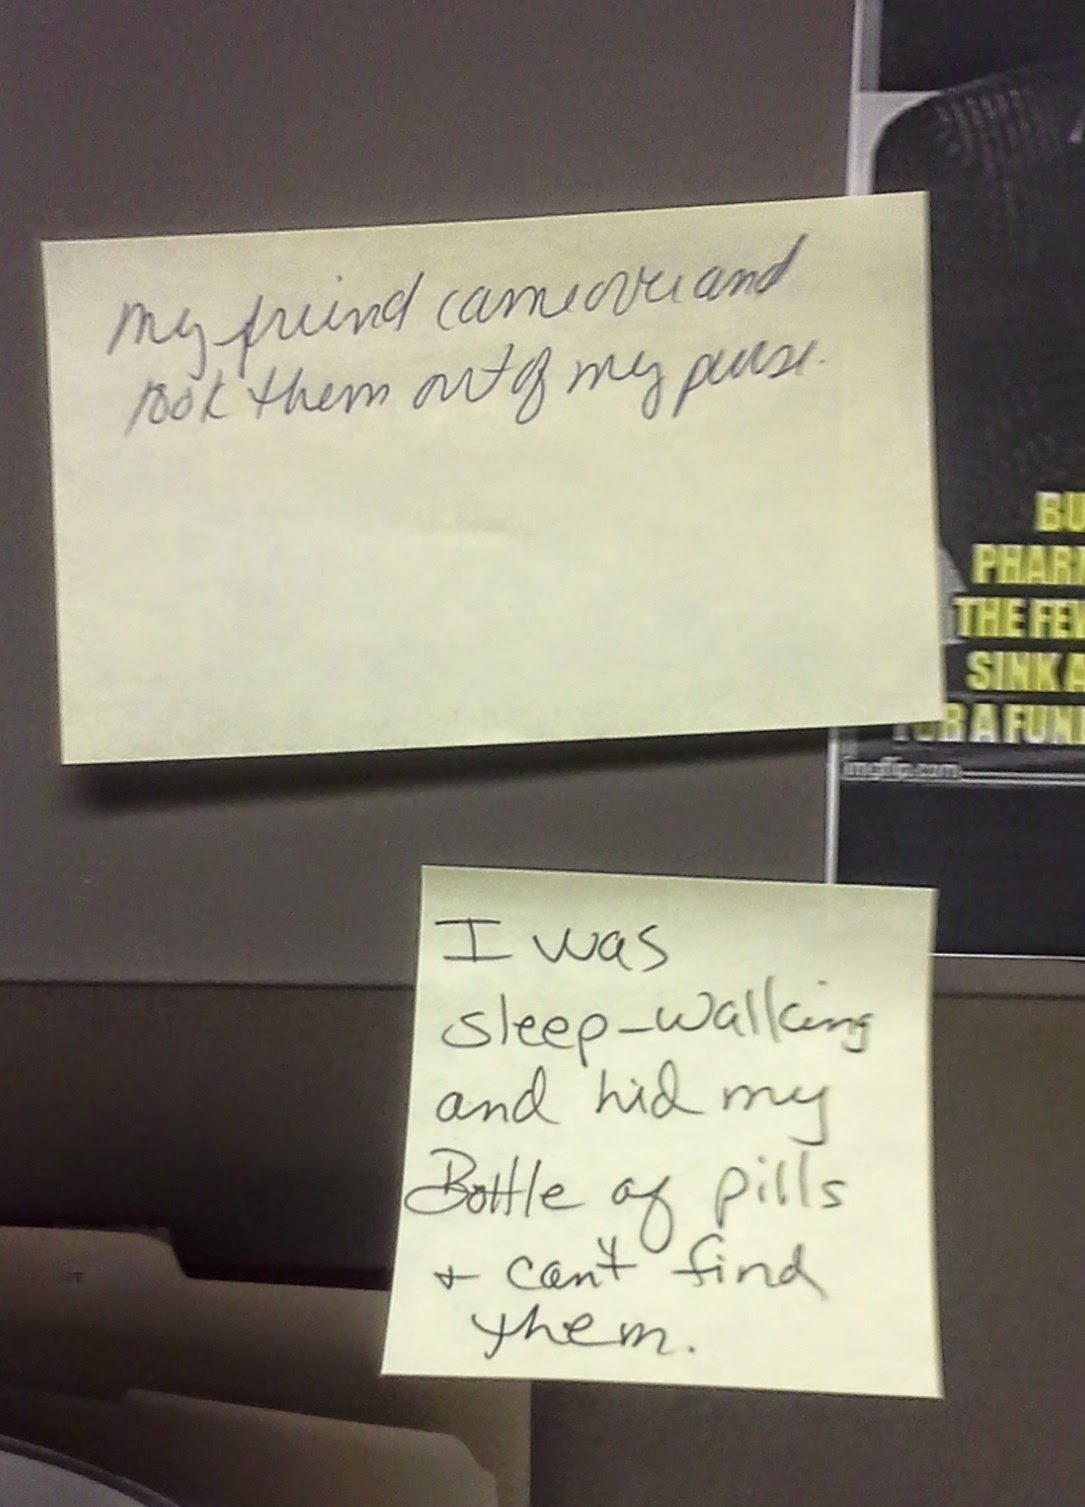 my friend came over and
took them out of my purse.
BU
PHARM
THE FEW
SINK A
FOR A FUN
imgflip.com
I was
sleep-walking
and hid my
Bottle of pills
+ can't find
them.